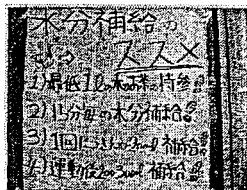 水分補給の
ススメ
1)最低1Lの水or茶持参!!
2)15分毎の水分補給!!
3)1回に 補給!!
4)運動後 補給!!